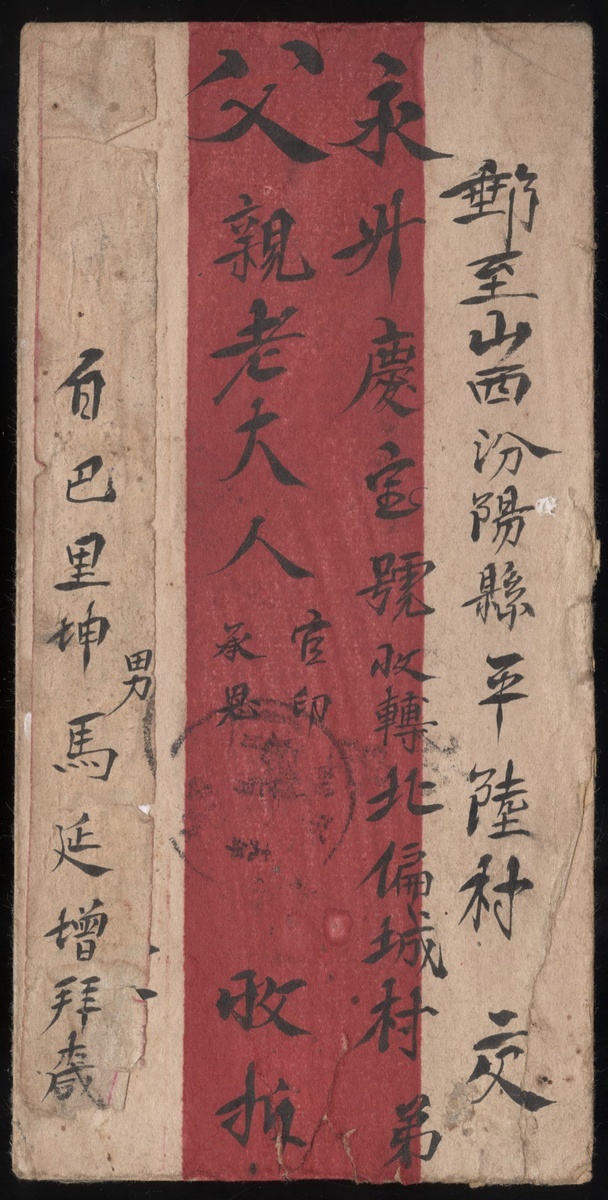 郵至山西汾陽縣平陸村 交
永升慶宝號收轉北偏城村 弟
父親老大人 官印 承恩 收拆
自巴里坤 男 馬延增拜